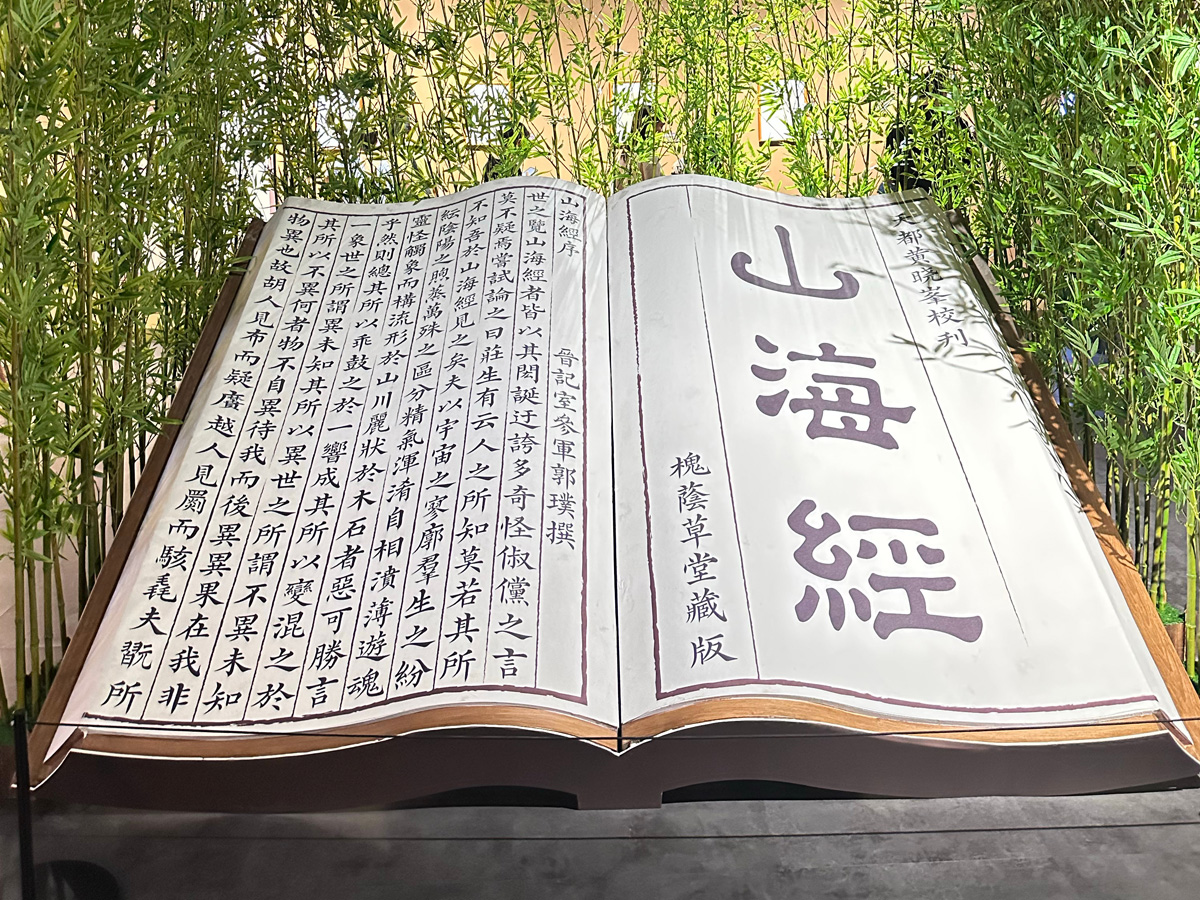 天都黄晓峯校刊
山海經
槐蔭草堂藏版
山海經序
晉記室參軍郭璞撰
世之覽山海經者皆以其閎誕迂誇多奇怪俶儻之言
莫不疑焉嘗試論之曰莊生有云人之所知莫若其所
不知吾於山海經見之矣夫以宇宙之寥廓羣生之紛
紜陰陽之煦蒸萬殊之區分精氣渾淆自相濆薄遊魂
靈怪觸象而構流形於山川麗狀於木石者惡可勝言
乎然則總其所以乖鼓之於一響成其所以變混之於
一象世之所謂異未知其所以異世之所謂不異未知
其所以不異何者物不自異待我而後異異果在我非
物異也故胡人見布而疑廣越人見罽而駭毳夫翫所